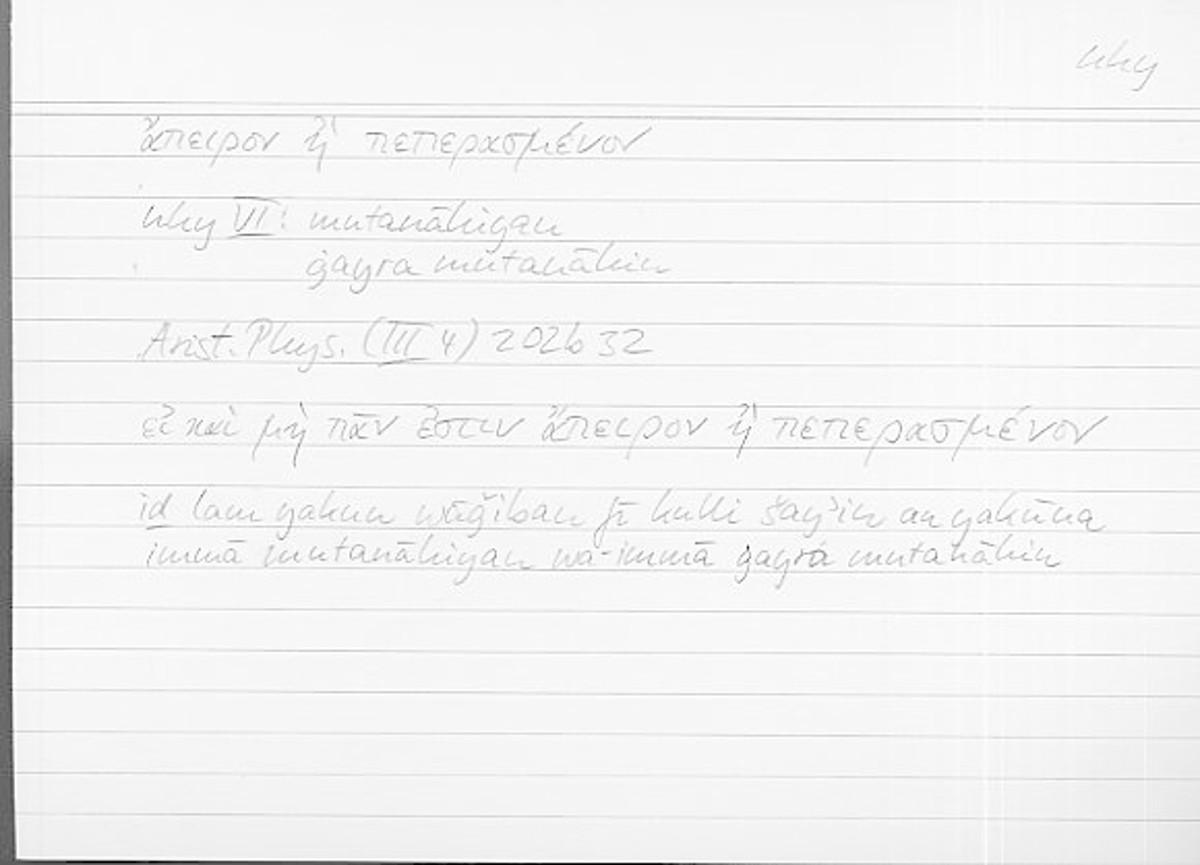 nhy
ἄπειρον ἢ πεπερασμένον
nhy VI: mutanāhiyan
ġayra mutanāhin
Arist. Phys. (III 4) 202b 32
εἰ καὶ μὴ πᾶν ἐστιν ἄπειρον ἢ πεπερασμένον
iḏ lam yakun wāǧiban fī kulli šayʾin an yakūna
immā mutanāhiyan wa-immā ġayra mutanāhin